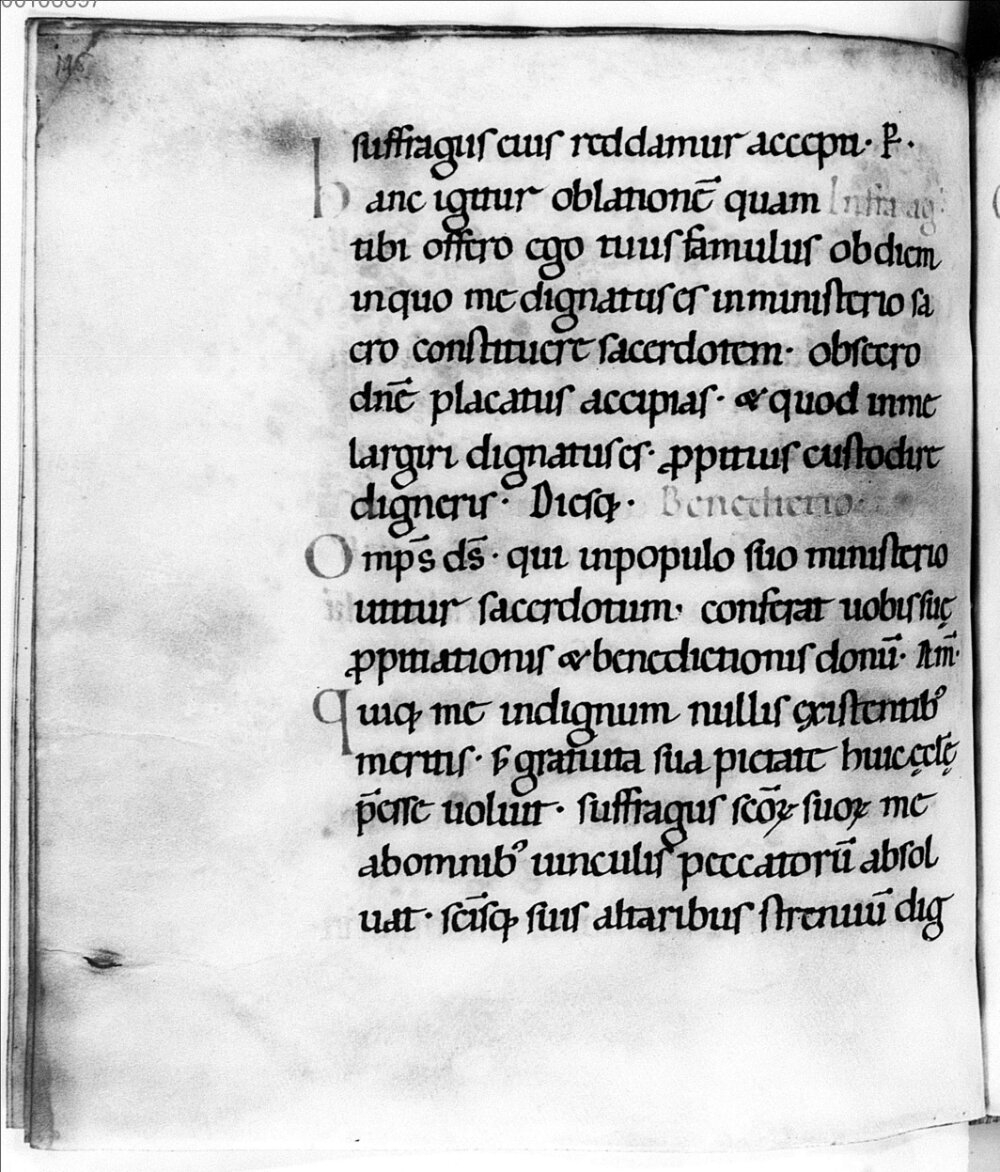 146
suffragiis eius reddamur accepti· P̄·
hanc igitur oblationē quam Infra ag̅·
tibi offero ego tuus famulus ob diem
in quo me dignatus es in ministerio sa
cro constituere sacerdotem· obsecro
dnē placatus accipias· & quod in me
largiri dignatus es· ꝓpitius custodire
digneris· Diesq;· Benedictio·
Omps̄ ds̄· qui in populo suo ministerio
utitur sacerdotum· conferat uobis suę
ꝓpitiationis & benedictionis donū· Am̄·
Quiq; me indignum nullis ęxistentib'
meritis· s̄ gratuita sua pietate huic ęcl̄ę
p̄esse uoluit· suffragiis sc̄oꝝ suoꝝ me
ab omnib' uinculis peccatorū absol
uat· sc̄isq; suis altaribus strenuū dig